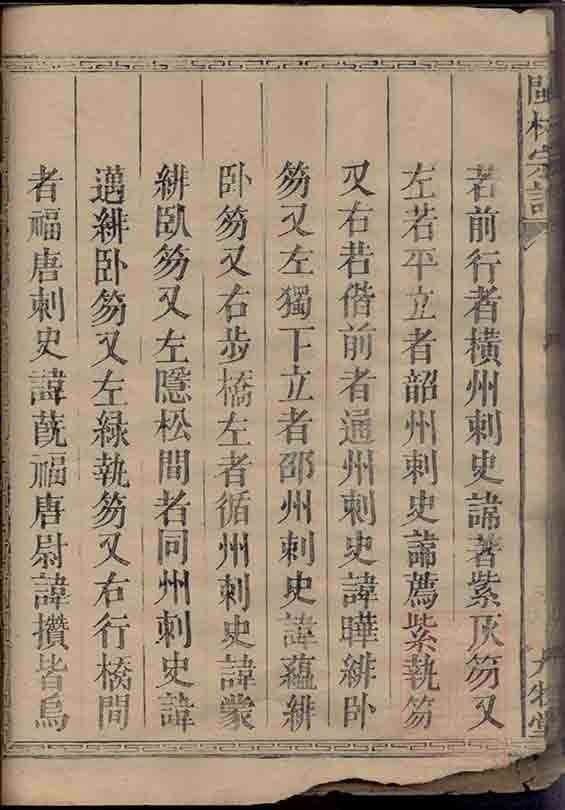 閩林宗譜
若前行者橫州刺史諱著紫灰笏又
左若平立者韶州刺史諱薦紫執笏
又右若偕前者通州刺史諱曄緋卧
笏又左獨下立者邵州刺史諱蘊緋
卧笏又右步橋左者循州刺史諱蒙
緋卧笏又左隱松間者同州刺史諱
邁緋卧笏又左綠執笏又右行橋間
者福唐刺史諱蔇福唐尉諱攢皆烏